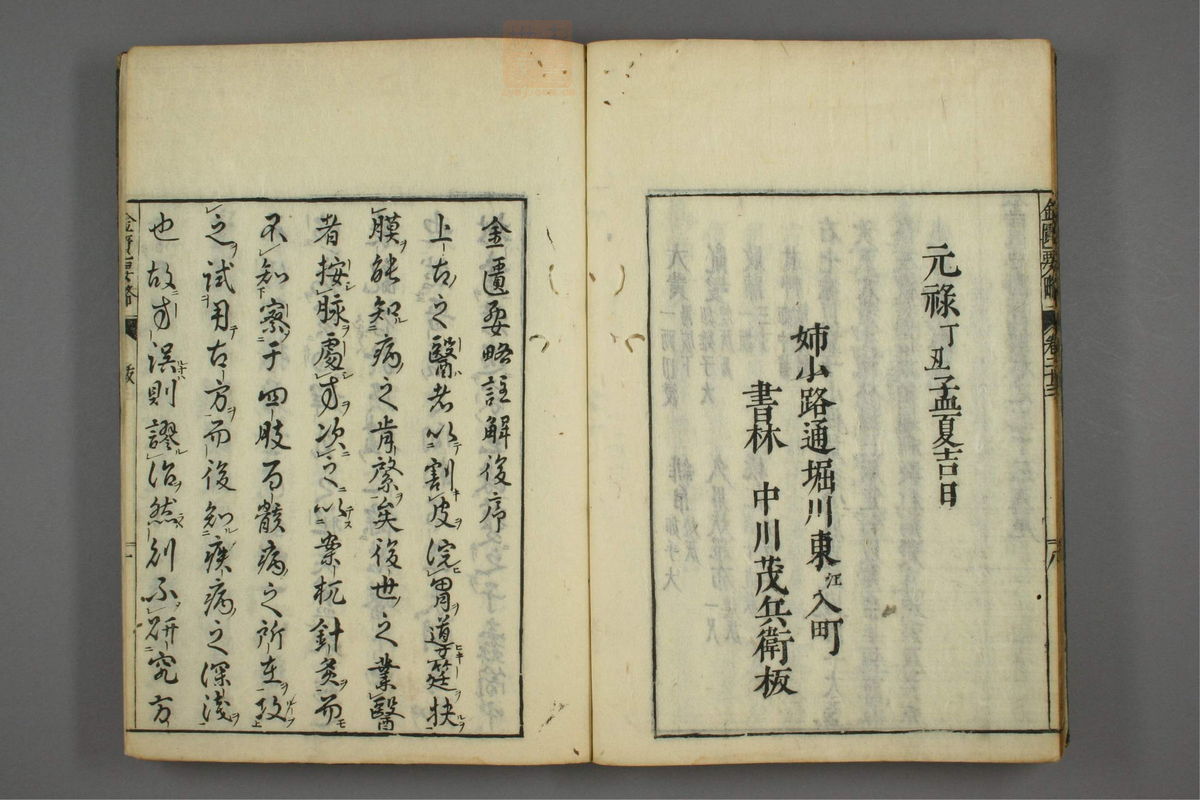 元祿丁丑孟夏吉日
姉小路通堀川東江入町
書林 中川茂兵衛板
金匱要略註解後序
上古之醫者以割皮浣胃導筳抉
膜能知病之肯綮矣後世之業醫
者按脉處方次之以案杌針灸而
不知察于四肢百骸病之所在故
之試用古方而後知疾病之深淺
也故方誤則謬治然則不研究方